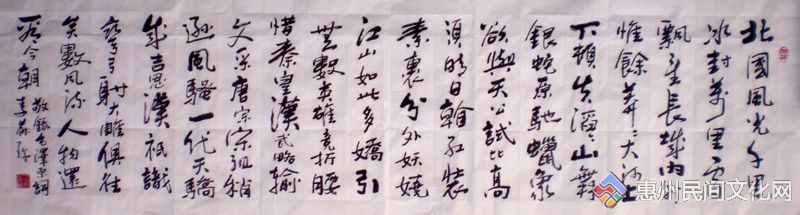 北國風光千里
冰封万里雪
飄望長城内外
惟餘莽々大河上
下頓失滔々山舞
銀蛇原馳蠟象
欲與天公試比高
須晴日看紅裝
素裹分外妖嬈
江山如此多嬌引
無數英雄竞折腰
惜秦皇漢武略输
文采唐宗宋祖稍
遜風騷一代天驕
成吉思漢祇識
彎弓射大雕俱往
矣數風流人物還
看今朝
敬録毛澤東詞
惠州民间文化网